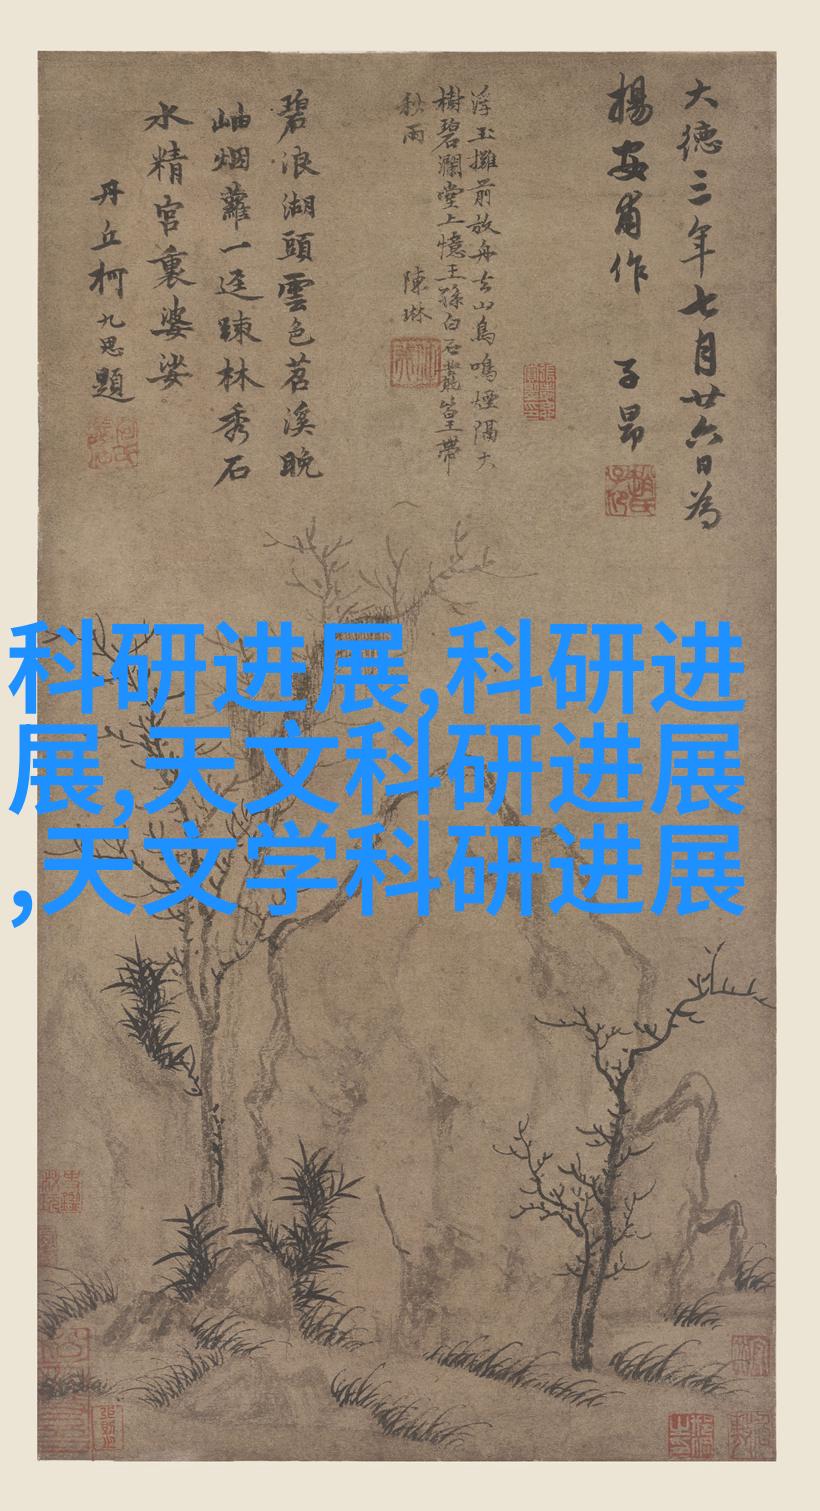 大德三年七月廿六日為
楊安甫作 子昂
浮玉攤前放舟去山鳥鳴煙隔大
樹碧瀾堂上憶王孫白石叢篁帶
秋雨 陳琳
碧浪湖頭雲色苕溪晚
岫烟蘿一迳踈林秀石
水精宮裏婆娑
丹丘柯九思題
科研进展,科研进
展,天文科研进展
,天文学科研进展